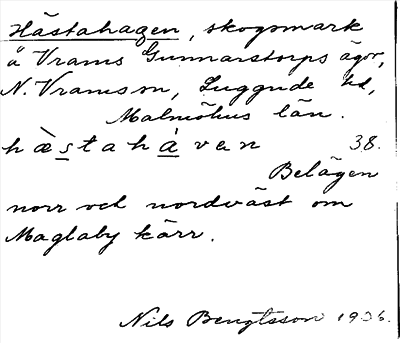 Hästahagen, skogsmark
å Vrams Gunnarstorps ägor,
N. Vrams sn, Luggude hd,
Malmöhus län.
hæstahàvan 38.
Belägen
norr och nordväst om
Maglaby kärr.
Nils Bengtsson 1936.